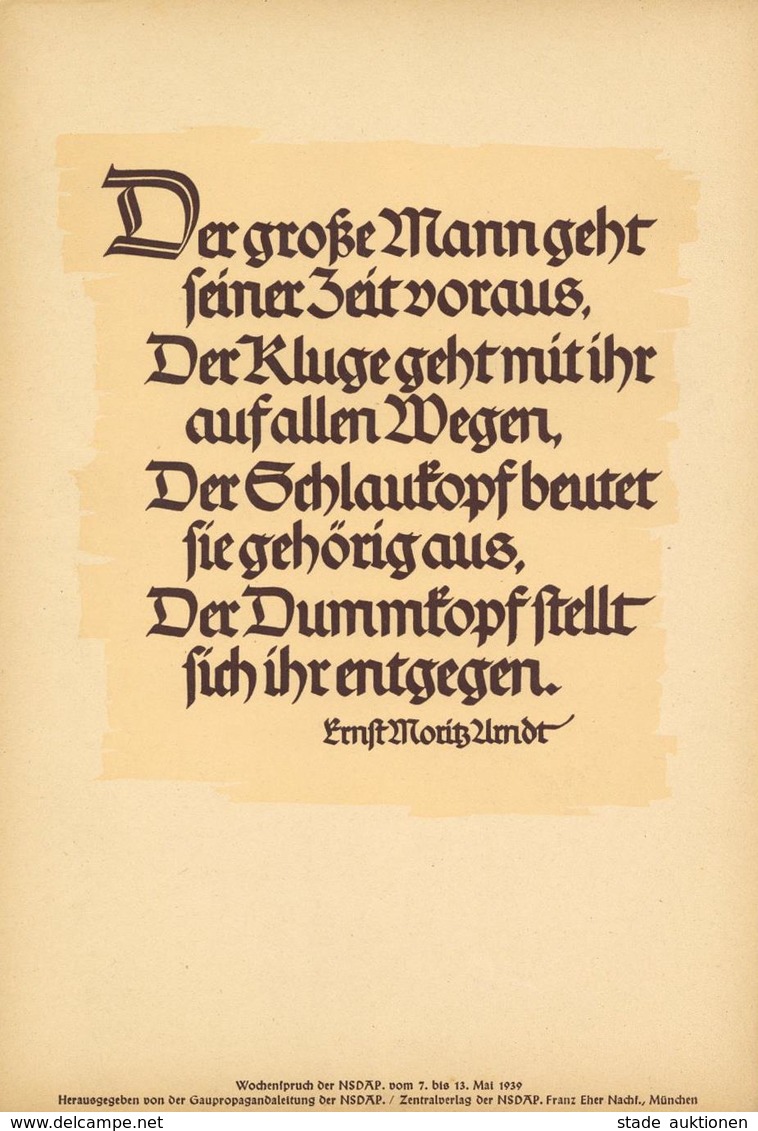 Der große Mann geht
seiner Zeit voraus,
Der Kluge geht mit ihr
auf allen Wegen,
Der Schlaukopf beutet
sie gehörig aus,
Der Dummkopf stellt
sich ihr entgegen.
Ernst Moritz Arndt
Wochenspruch der NSDAP. vom 7. bis 13. Mai 1939
Herausgegeben von der Gaupropagandaleitung der NSDAP. / Zentralverlag der NSDAP. Franz Eher Nachf., München
delcampe.net
stade auktionen